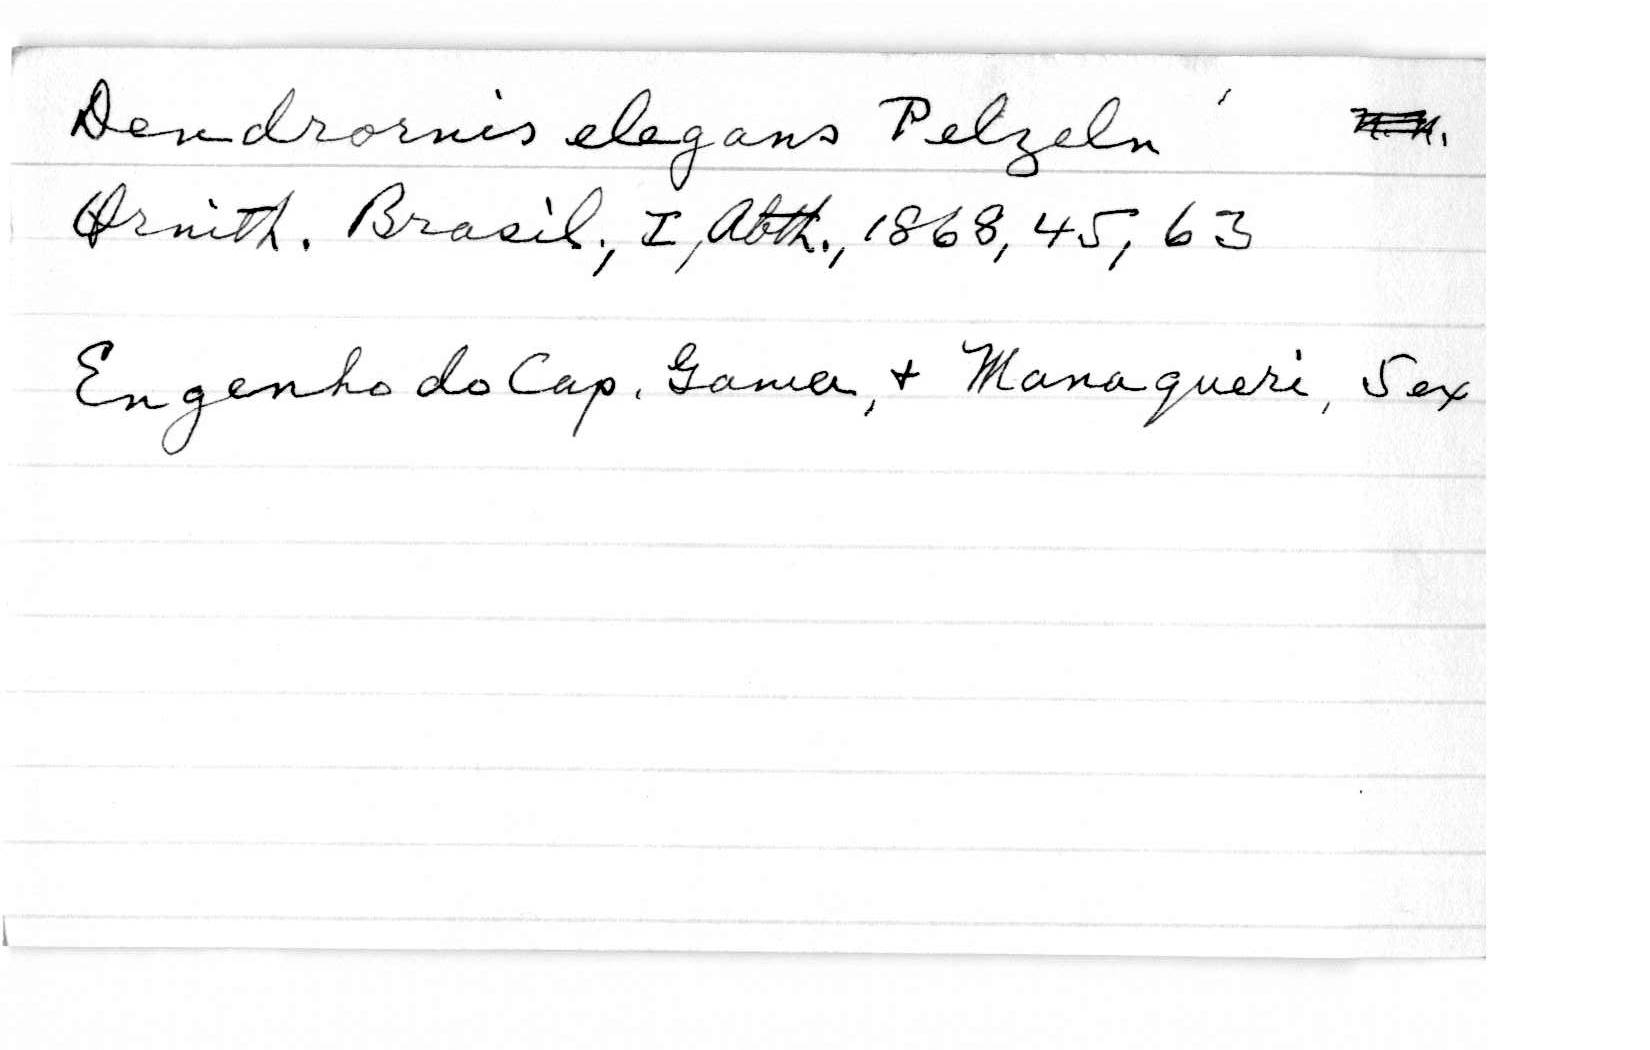 Dendrornis elegans Pelzeln
Ornith. Brasil., I, Abth., 1868, 45, 63
Engenho do Cap. Gama, + Manaqueri, Sex